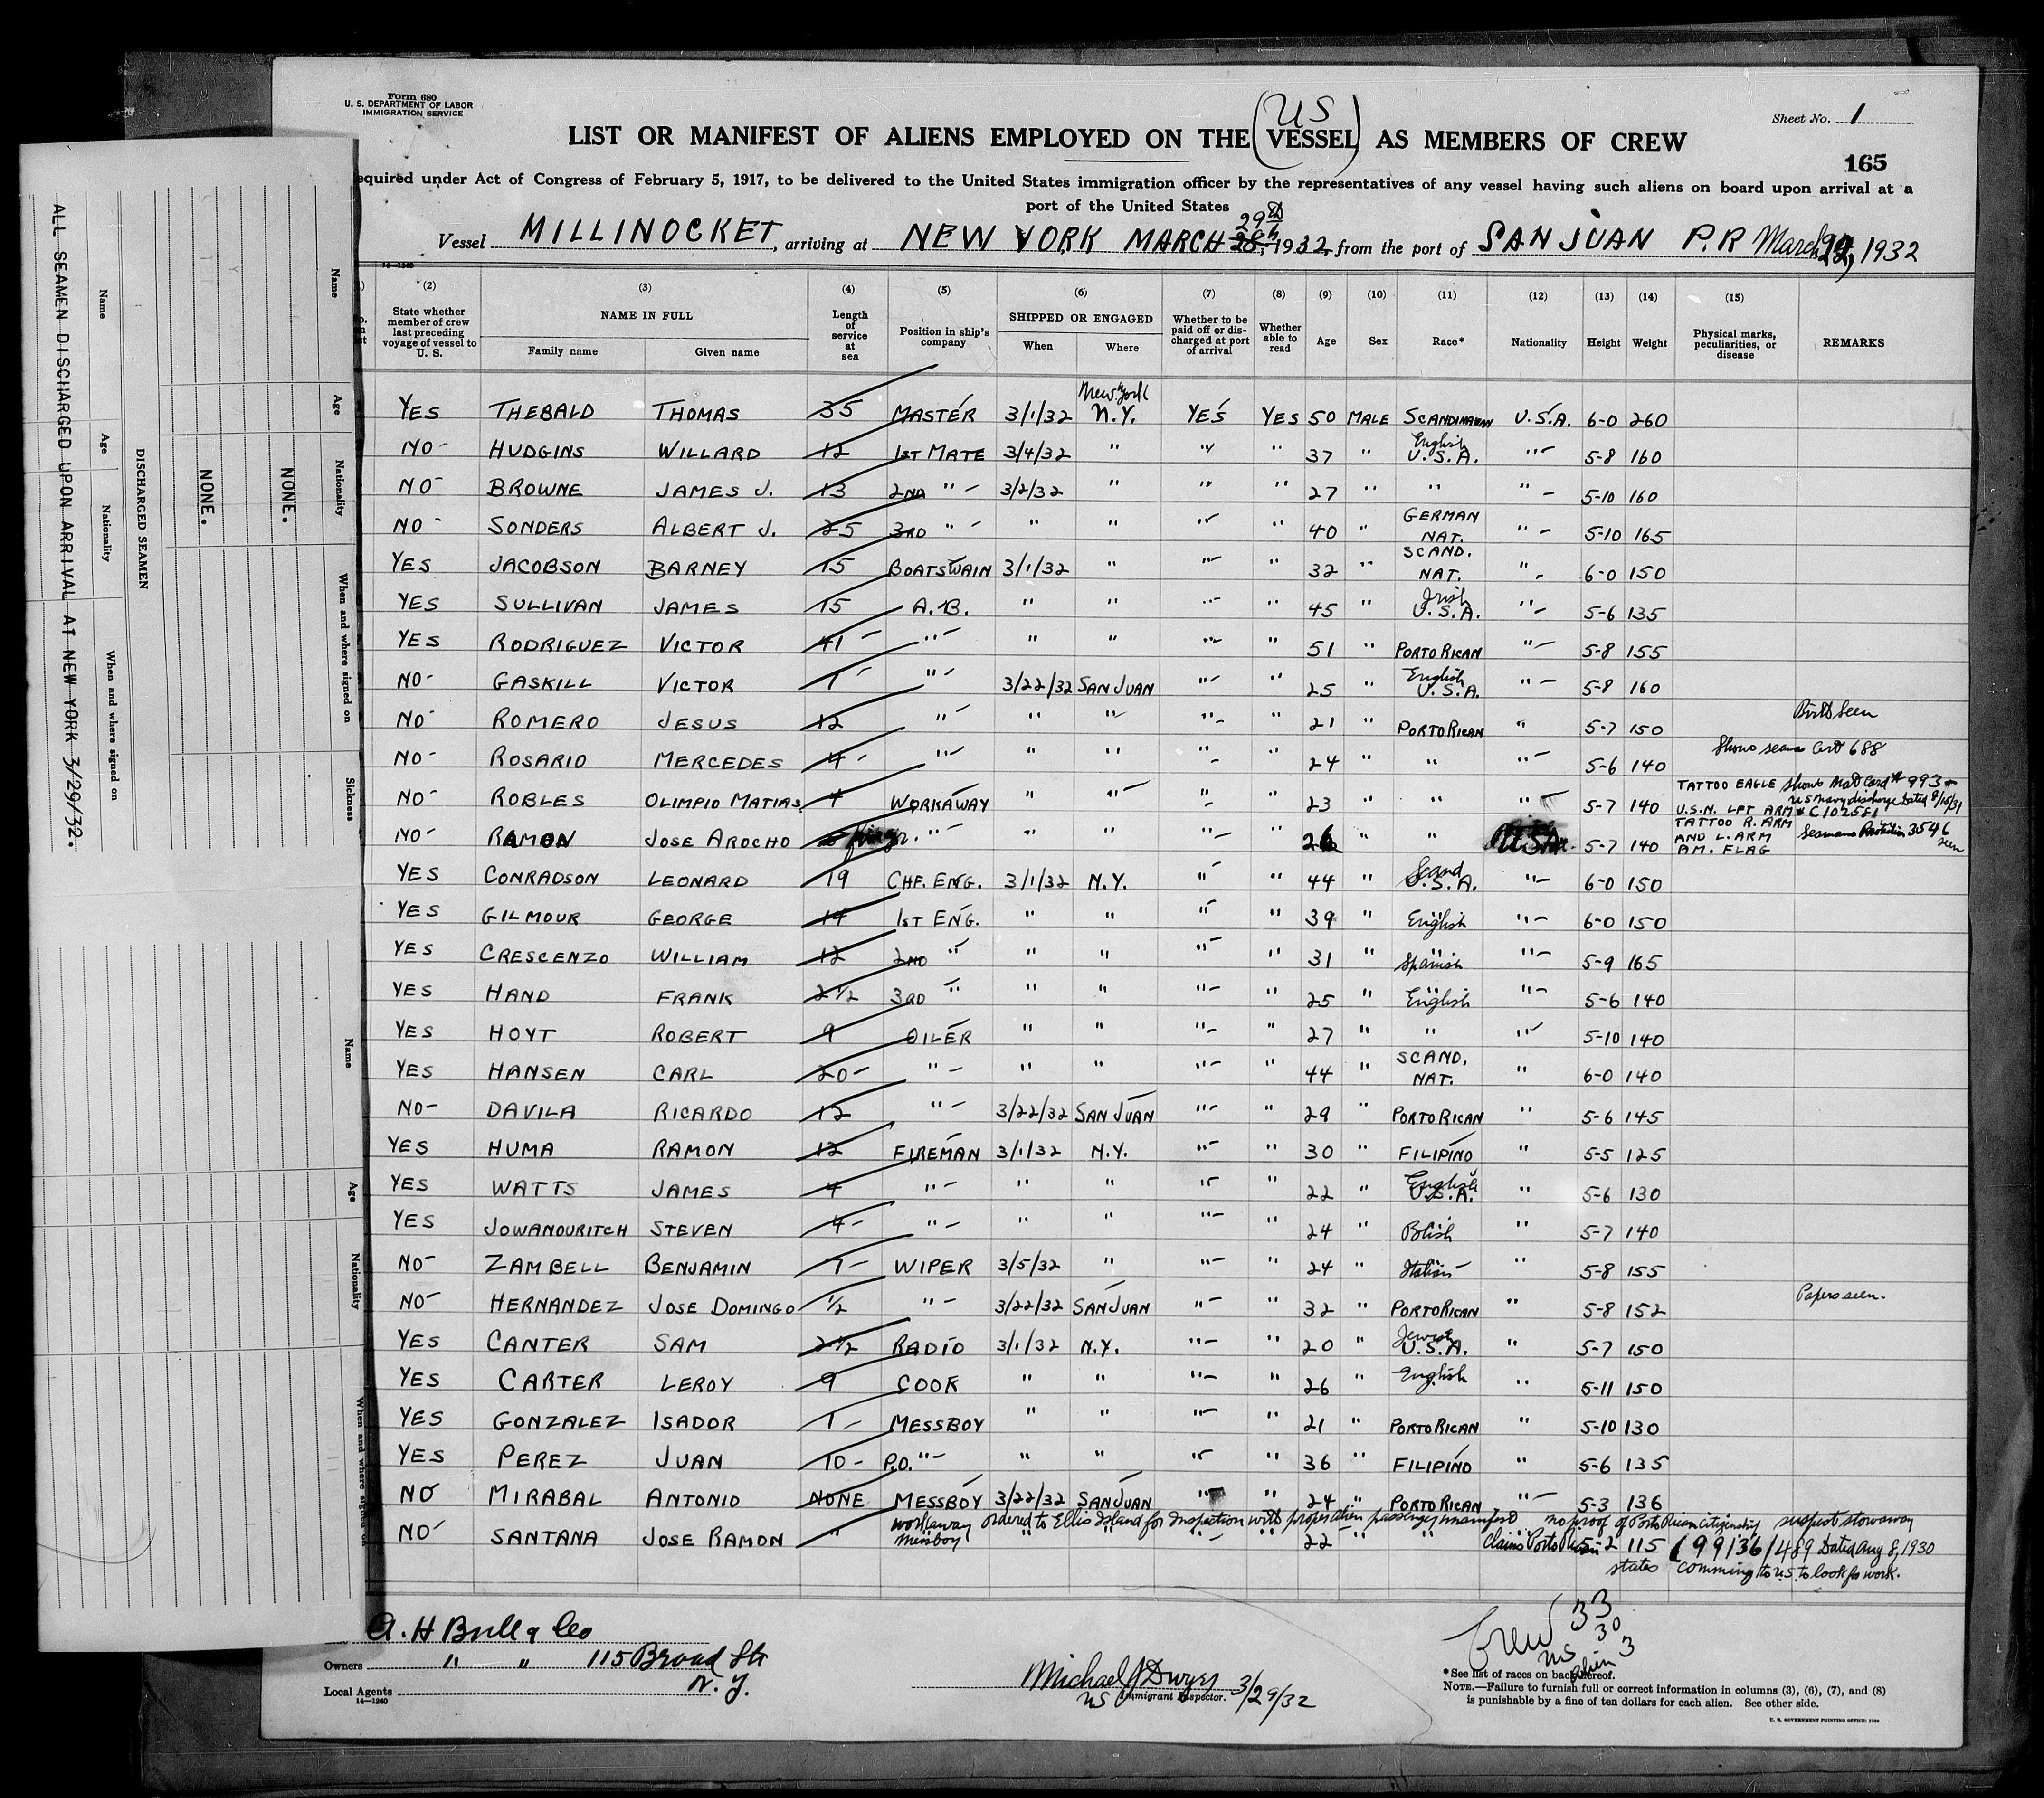 Form 680
U. S. DEPARTMENT OF LABOR
IMMIGRATION SERVICE
(US)
LIST OR MANIFEST OF ALIENS EMPLOYED ON THE VESSEL AS MEMBERS OF CREW
Sheet No. 1
165
equired under Act of Congress of February 5, 1917, to be delivered to the United States immigration officer by the representatives of any vessel having such aliens on board upon arrival at a
port of the United States
29th
Vessel MILLINOCKET, arriving at NEW YORK MARCH 28th, 1932, from the port of SAN JUAN P.R March 1932
14-1240
(2) (3) (4) (5) (6) (7) (8) (9) (10) (11) (12) (13) (14) (15)
State whether member of crew last preceding voyage of vessel to U. S. NAME IN FULL Family name Given name Length of service at sea Position in ship's company SHIPPED OR ENGAGED When Where Whether to be paid off or discharged at port of arrival Whether able to read Age Sex Race* Nationality Height Weight Physical marks, peculiarities, or disease REMARKS
New York
YES THEBALD THOMAS 35 MASTER 3/1/32 N.Y. YES YES 50 MALE SCANDINAVIAN U.S.A. 6-0 260
English
NO HUDGINS WILLARD 12 1ST MATE 3/4/32 " " " 37 " U.S.A. " 5-8 160
NO BROWNE JAMES J. 13 2ND " 3/2/32 " " " 27 " " " 5-10 160
NO SONDERS ALBERT J. 25 3RD " " " " " 40 " GERMAN NAT. " 5-10 165
YES JACOBSON BARNEY 15 BOATSWAIN 3/1/32 " " " 32 " SCAND. NAT. " 6-0 150
Irish
YES SULLIVAN JAMES 15 A.B. " " " " 45 " U.S.A. " 5-6 135
YES RODRIGUEZ VICTOR 41 " " " " " 51 " PORTO RICAN " 5-8 155
English
NO GASKILL VICTOR 1 " 3/22/32 SAN JUAN " " 25 " U.S.A. " 5-8 160
NO ROMERO JESUS 12 " " " " " 21 " PORTO RICAN " 5-7 150 Birth Seen
NO ROSARIO MERCEDES 4 " " " " " 24 " " " 5-6 140 Shows seaman Card 688
NO ROBLES OLIMPIO MATIAS 4 WORKAWAY " " " " 23 " " " 5-7 140 TATTOO EAGLE U.S.N. LFT ARM Shows Card # 993 US Navy discharge dated 8/15/31 # C102581
NO RAMON JOSE AROCHO " " " " " 26 " " USA 5-7 140 TATTOO R. ARM AND L. ARM AM. FLAG Seamans Protection 3546 seen
Scand
YES CONRADSON LEONARD 19 CHF. ENG. 3/1/32 N.Y. " " 44 " U.S.A. " 6-0 150
YES GILMOUR GEORGE 14 1ST ENG. " " " " 39 " English " 6-0 150
YES CRESCENZO WILLIAM 12 2ND " " " " " 31 " Spanish " 5-9 165
YES HAND FRANK 2½ 3RD " " " " " 25 " English " 5-6 140
YES HOYT ROBERT 9 OILER " " " " 27 " " " 5-10 140
YES HANSEN CARL 20 " " " " " 44 " SCAND. NAT. " 6-0 140
NO DAVILA RICARDO 12 " 3/22/32 SAN JUAN " " 29 " PORTO RICAN " 5-6 145
YES HUMA RAMON 12 FIREMAN 3/1/32 N.Y. " " 30 " FILIPINO " 5-5 125
English
YES WATTS JAMES 4 " " " " " 22 " U.S.A. " 5-6 130
YES JOWANOURITCH STEVEN 4 " " " " " 24 " " 5-7 140
NO ZAMBELL BENJAMIN 1 WIPER 3/5/32 " " " 24 " Italian " 5-8 155
NO HERNANDEZ JOSE DOMINGO ½ " 3/22/32 SAN JUAN " " 32 " PORTO RICAN " 5-8 152 Papers seen.
Jewish
YES CANTER SAM 2½ RADIO 3/1/32 N.Y. " " 20 " U.S.A. " 5-7 150
YES CARTER LEROY 9 COOK " " " " 26 " English " 5-11 150
YES GONZALEZ ISADOR 1 MESSBOY " " " " 21 " PORTO RICAN " 5-10 130
YES PEREZ JUAN 10 P.O. " " " " " 36 " FILIPINO " 5-6 135
NO MIRABAL ANTONIO NONE MESSBOY 3/22/32 SAN JUAN " " 24 " PORTO RICAN " 5-3 136
workaway ordered to Ellis Island for Inspection with proper alien passenger manifest no proof of Porto Rican Citizenship suspect stowaway
NO SANTANA JOSE RAMON " Messboy " " " " 22 " " Claims Porto Rican 5-2 115 (99136/489 Dated Aug 8, 1930
states comming to U.S. to look for work.
A. H Bull & Co
Owners " " 115 Broad St
N. Y.
Local Agents
14-1240
Michael J Dwyer
US Immigrant Inspector. 3/29/32
Crew 33
US 30
Alien 3
*See list of races on back hereof.
NOTE.—Failure to furnish full or correct information in columns (3), (6), (7), and (8)
is punishable by a fine of ten dollars for each alien. See other side.
U. S. GOVERNMENT PRINTING OFFICE: 1929
ALL SEAMEN DISCHARGED UPON ARRIVAL AT NEW YORK 3/29/32.
Name Age Nationality When and where signed on
DISCHARGED SEAMEN
NONE.
NONE.
Name Age Nationality When and where signed on Sickness
Name Age Nationality When and where signed on